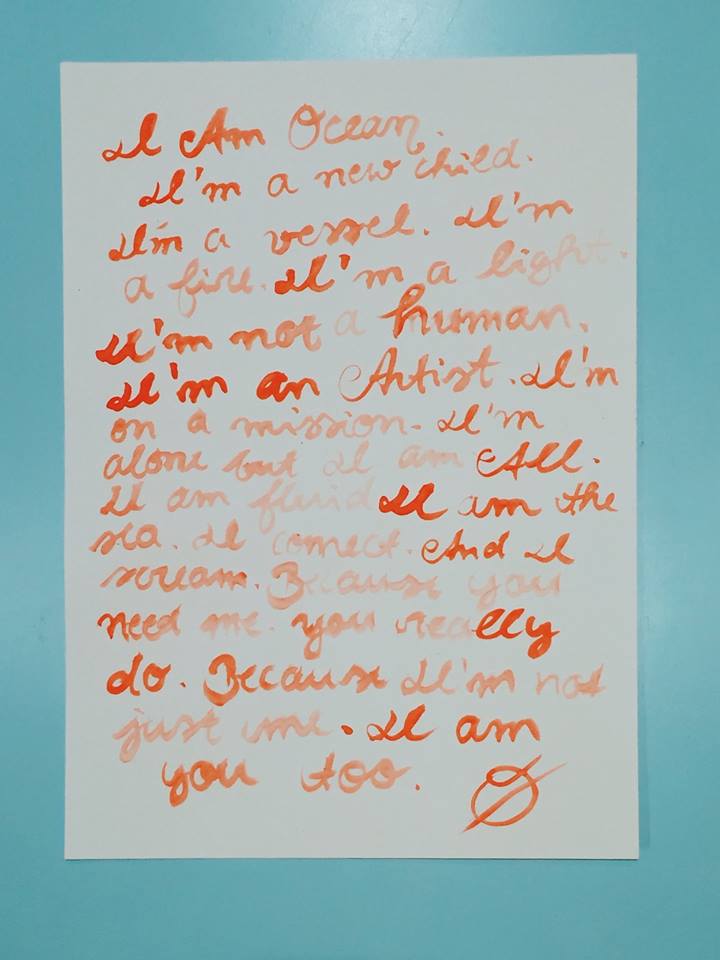 I Am Ocean.
I'm a new child.
I'm a vessel. I'm
a fire. I'm a light.
I'm not a human.
I'm an Artist. I'm
on a mission. I'm
alone but I am All.
I am fluid I am the
sea. I connect. And I
scream. Because you
need me. you really
do. Because I'm not
just me. I am
you too.